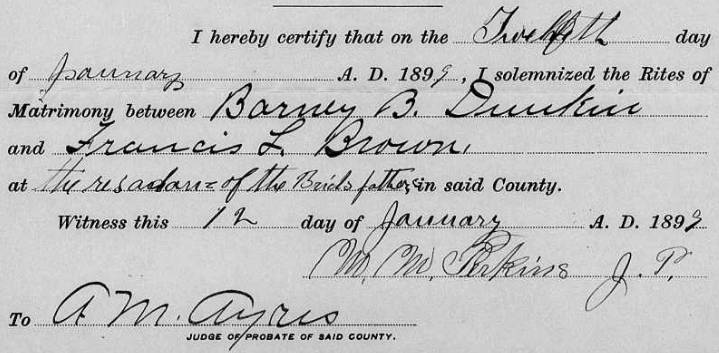 I hereby certify that on the Twelfth day
of January A. D. 1899, I solemnized the Rites of
Matrimony between Barney B. Dunkin
and Francis L. Brown,
at the resadanc of the Brids fathers in said County.
Witness this 12 day of January A. D. 1899
M. M. Perkins J. P.
To A M. Ayres
JUDGE OF PROBATE OF SAID COUNTY.